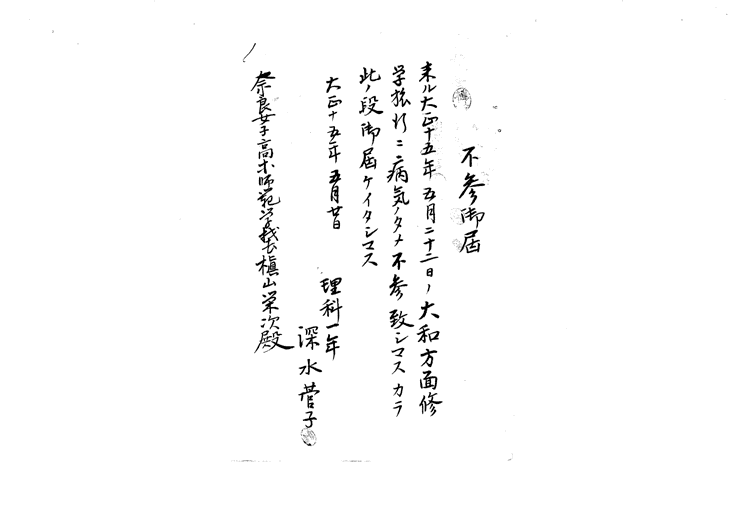 不参御届
来ル大正十五年五月二十二日ノ大和方面修
学旅行ニ病気ノタメ不参致シマスカラ
此ノ段御届ケイタシマス
大正十五年五月廿日
理科一年
深水菅子
奈良女子高等師範学校長槇山栄次殿